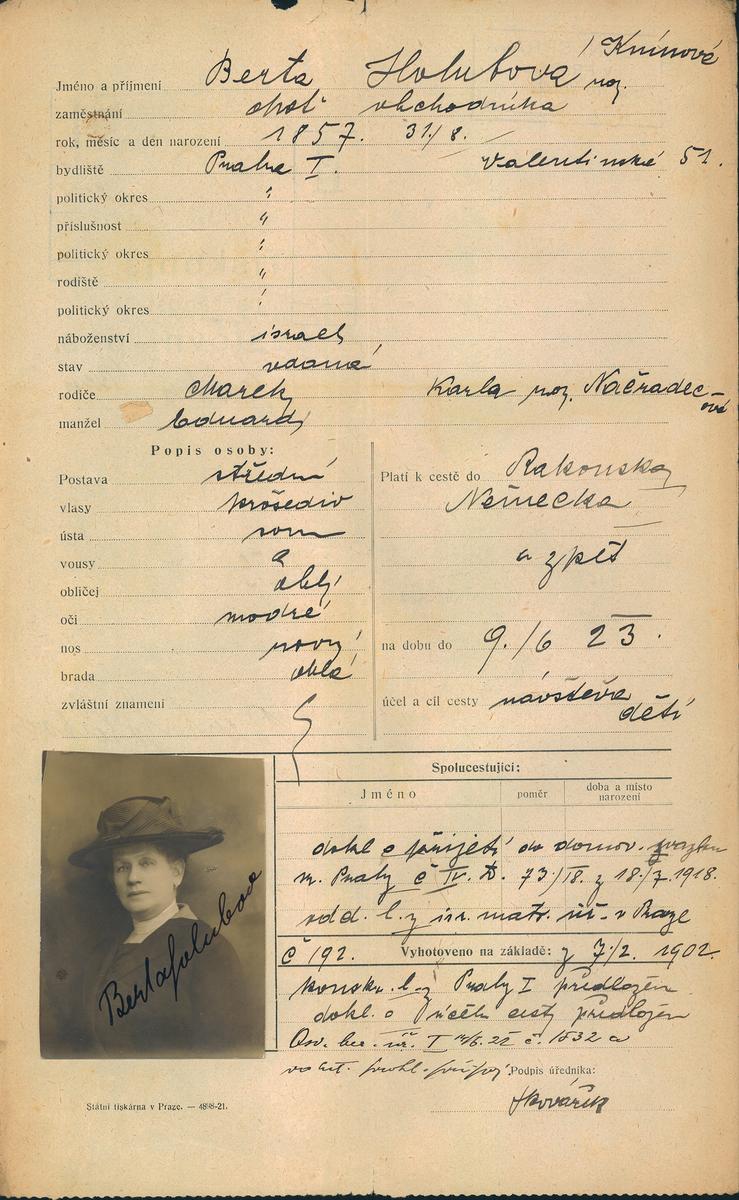 Jméno a příjmení Berta Holubová roz. Knínová
zaměstnání choť obchodníka
rok, měsíc a den narození 1857. 31/8.
bydliště Praha I. Valentinská 51.
politický okres "
příslušnost "
politický okres "
rodiště "
politický okres "
náboženství israel
stav vdaná
rodiče Marek Karla roz. Načradec-
ová
manžel Eduard
Popis osoby:
Postava střední
vlasy prošediv
ústa
vousy
obličej oblý
oči modré
nos rovný
brada oblá
zvláštní znamení
Platí k cestě do Rakouska
Německa
a zpět
na dobu do 9./6 23.
účel a cíl cesty návštěva
dětí
Spolucestující:
Jméno poměr doba a místo narození
dokl o přijetí do domov. svazku
m. Prahy č IV. D. 73/18. z 18./7. 1918.
odd. l. z isr. matr. úř. v Praze
č 192. Vyhotoveno na základě: z 7/2. 1902.
konskr. l. z Prahy I předložen
dokl. o účelu cesty předložen
Osv. ber. úř. I č. 1532 a
Podpis úředníka:
Kovářík
Berta Holubova
Státní tiskárna v Praze. — 4898-21.